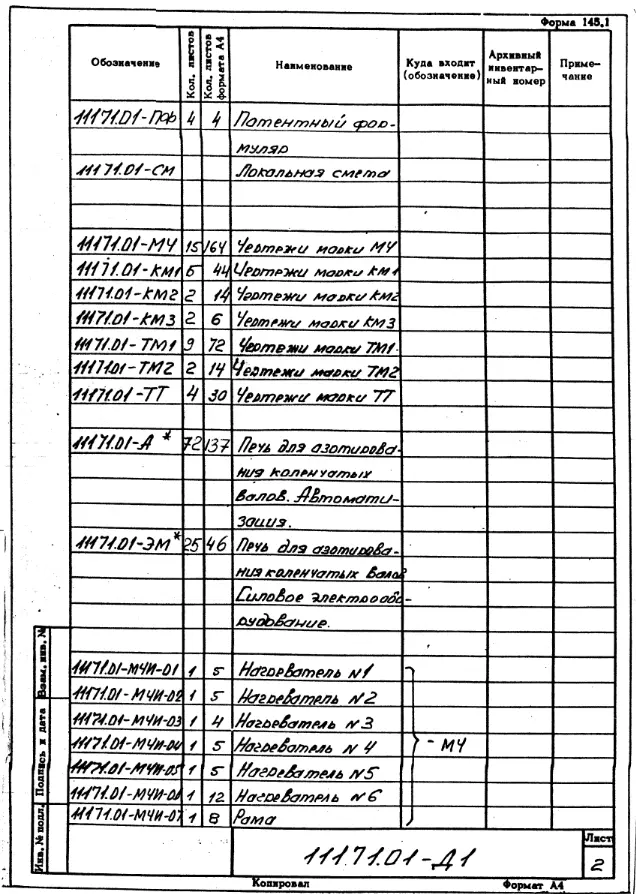 Форма 145.1
Обозначение Кол. листов Кол. листов формата А4 Наименование Куда входит (обозначение) Архивный инвентарный номер Примечание
11171.01-ПФ 4 4 Патентный фор-
муляр
11171.01-СМ Локальная смета
11171.01-МЧ 15 164 Чертежи марки МЧ
11171.01-КМ1 6 44 Чертежи марки КМ1
11171.01-КМ2 2 14 Чертежи марки КМ2
11171.01-КМ3 2 6 Чертежи марки КМ3
11171.01-ТМ1 9 72 Чертежи марки ТМ1
11171.01-ТМ2 2 14 Чертежи марки ТМ2
11171.01-ТТ 4 30 Чертежи марки ТТ
11171.01-А * 72 137 Печь для азотирова-
ния коленчатых
валов. Автомати-
зация.
11171.01-ЭМ * 25 46 Печь для азотирова-
ния коленчатых валов
Силовое электрообо-
рудование.
11171.01-МЧИ-01 1 5 Нагреватель №1
11171.01-МЧИ-02 1 5 Нагреватель №2
11171.01-МЧИ-03 1 4 Нагреватель №3
11171.01-МЧИ-04 1 5 Нагреватель №4 - МЧ
11171.01-МЧИ-05 1 5 Нагреватель №5
11171.01-МЧИ-06 1 12 Нагреватель №6
11171.01-МЧИ-07 1 8 Рама
Инв. № подл. Подпись и дата Взам. инв. №
11171.01-Д1
Лист
2
Копировал Формат А4